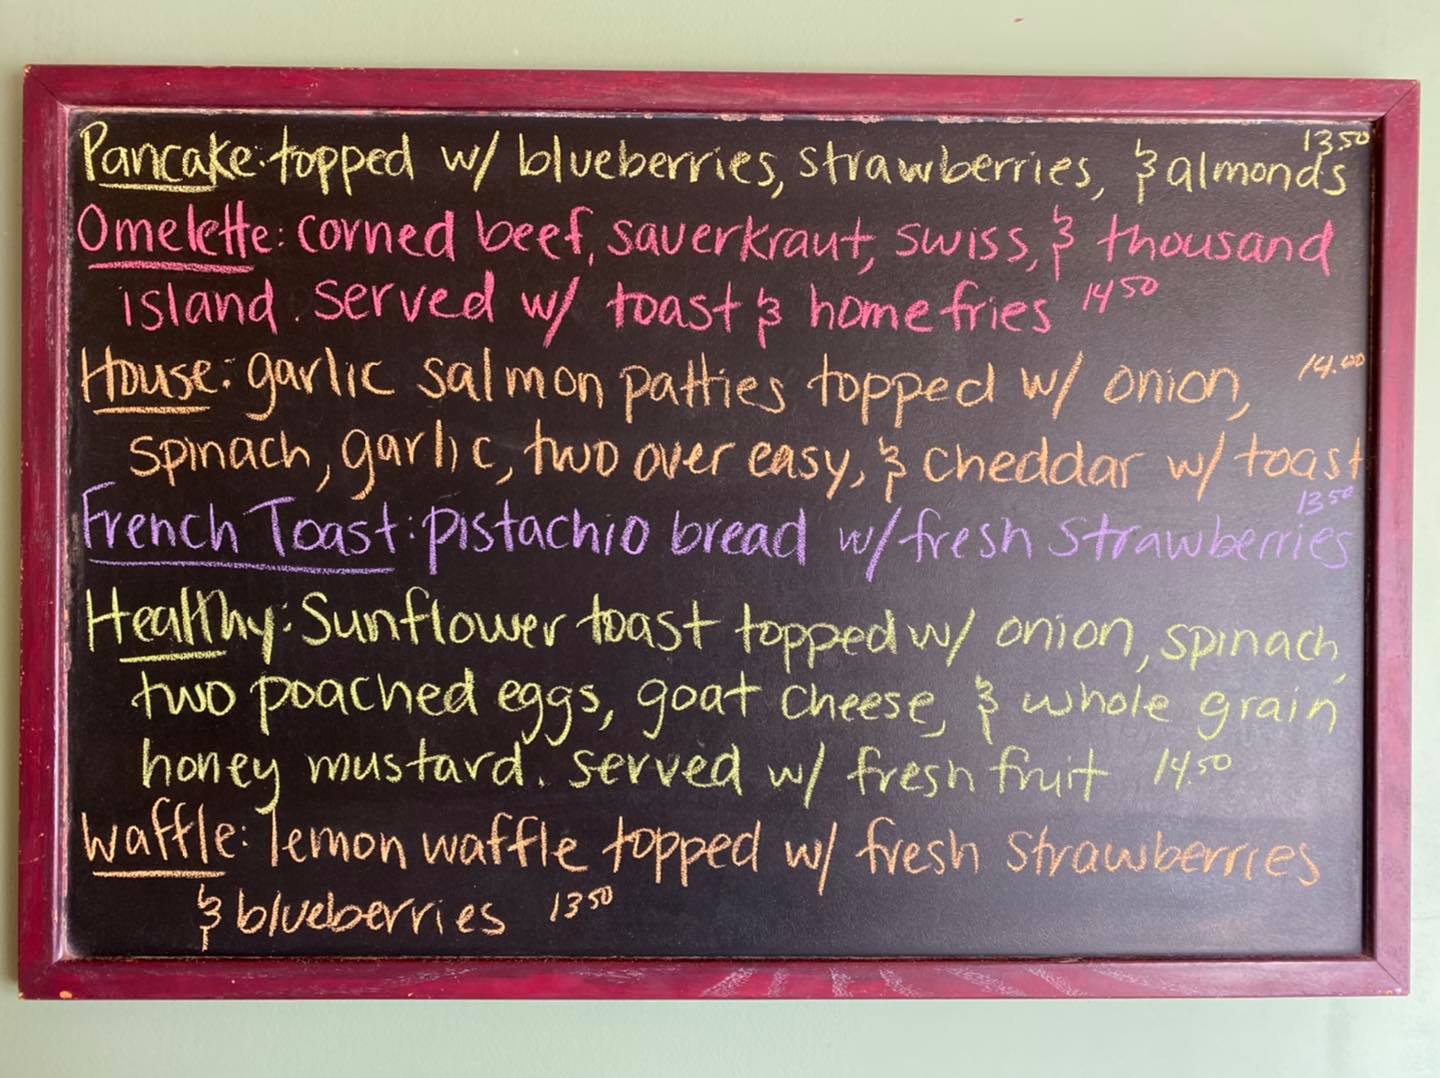 Pancake: topped w/ blueberries, strawberries, & almonds 13.50
Omelette: corned beef, sauerkraut, swiss, & thousand
island. served w/ toast & homefries 14.50
House: garlic salmon patties topped w/ onion, 14.00
spinach, garlic, two over easy, & cheddar w/ toast
French Toast: pistachio bread w/ fresh strawberries 13.50
Healthy: Sunflower toast topped w/ onion, spinach,
two poached eggs, goat cheese, & whole grain
honey mustard. served w/ fresh fruit 14.50
Waffle: lemon waffle topped w/ fresh strawberries
& blueberries 13.50